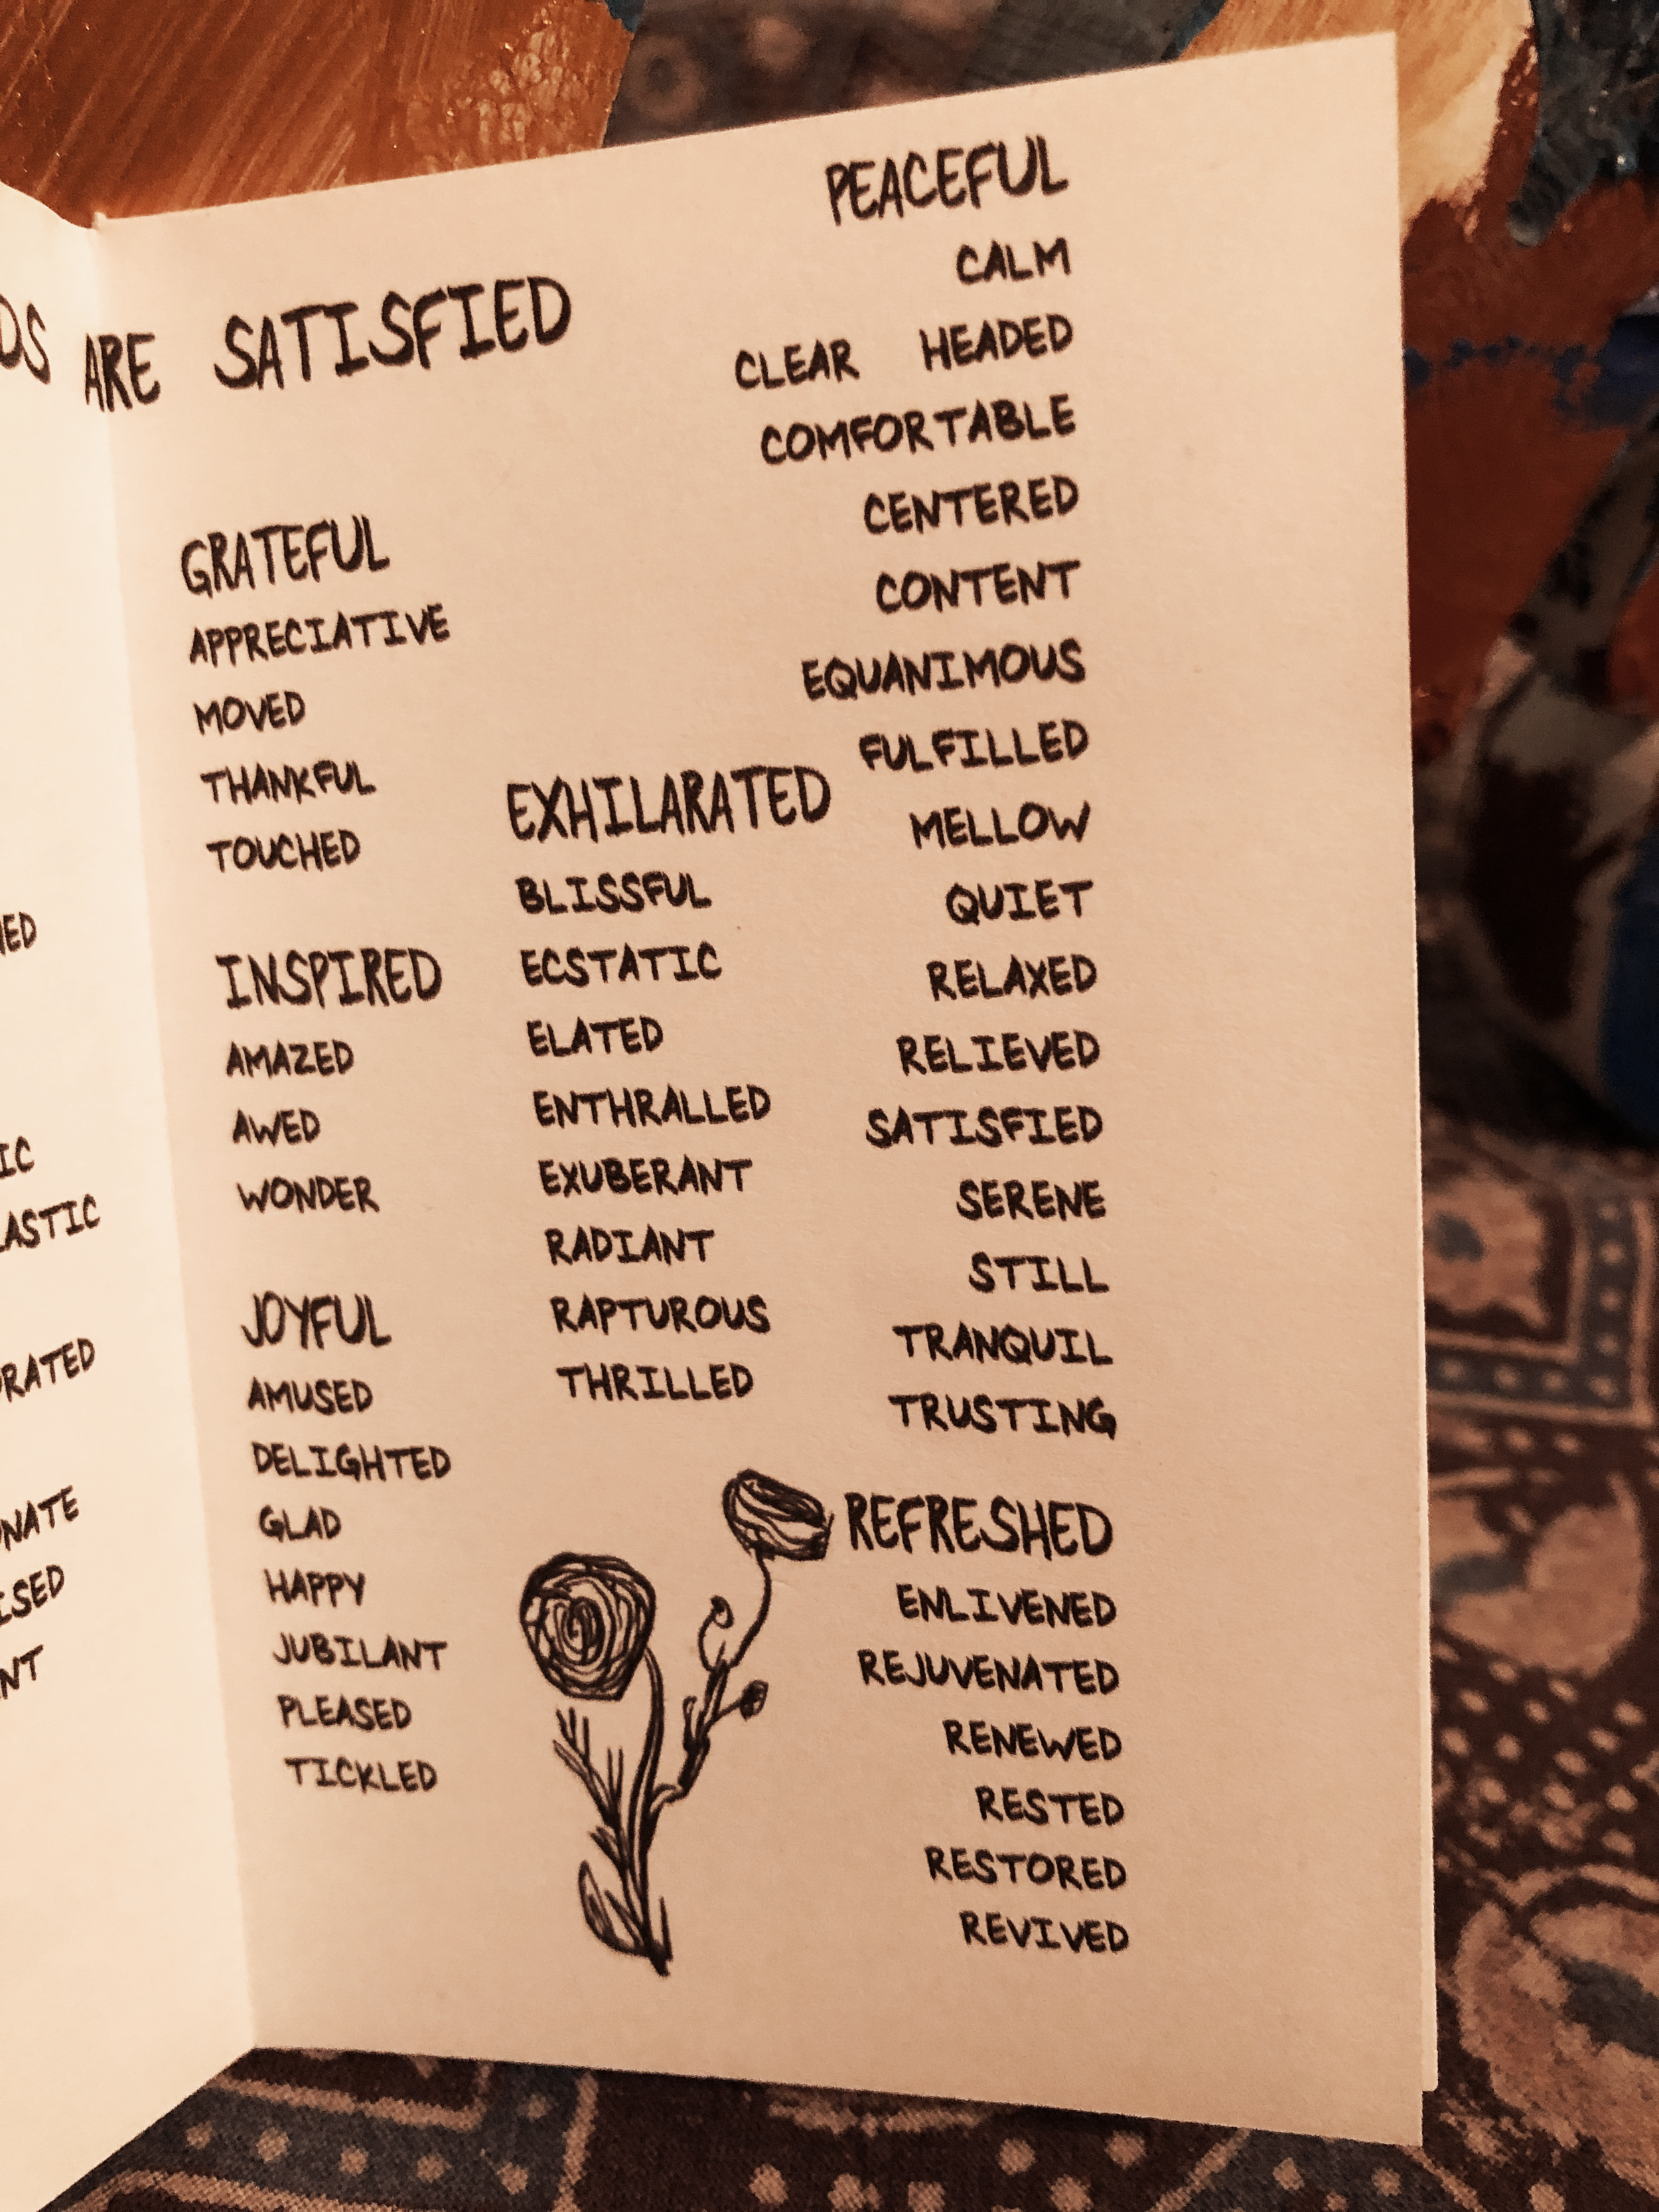 ARE SATISFIED
GRATEFUL
APPRECIATIVE
MOVED
THANKFUL
TOUCHED
INSPIRED
AMAZED
AWED
WONDER
JOYFUL
AMUSED
DELIGHTED
GLAD
HAPPY
JUBILANT
PLEASED
TICKLED
EXHILARATED
BLISSFUL
ECSTATIC
ELATED
ENTHRALLED
EXUBERANT
RADIANT
RAPTUROUS
THRILLED
PEACEFUL
CALM
CLEAR HEADED
COMFORTABLE
CENTERED
CONTENT
EQUANIMOUS
FULFILLED
MELLOW
QUIET
RELAXED
RELIEVED
SATISFIED
SERENE
STILL
TRANQUIL
TRUSTING
REFRESHED
ENLIVENED
REJUVENATED
RENEWED
RESTED
RESTORED
REVIVED